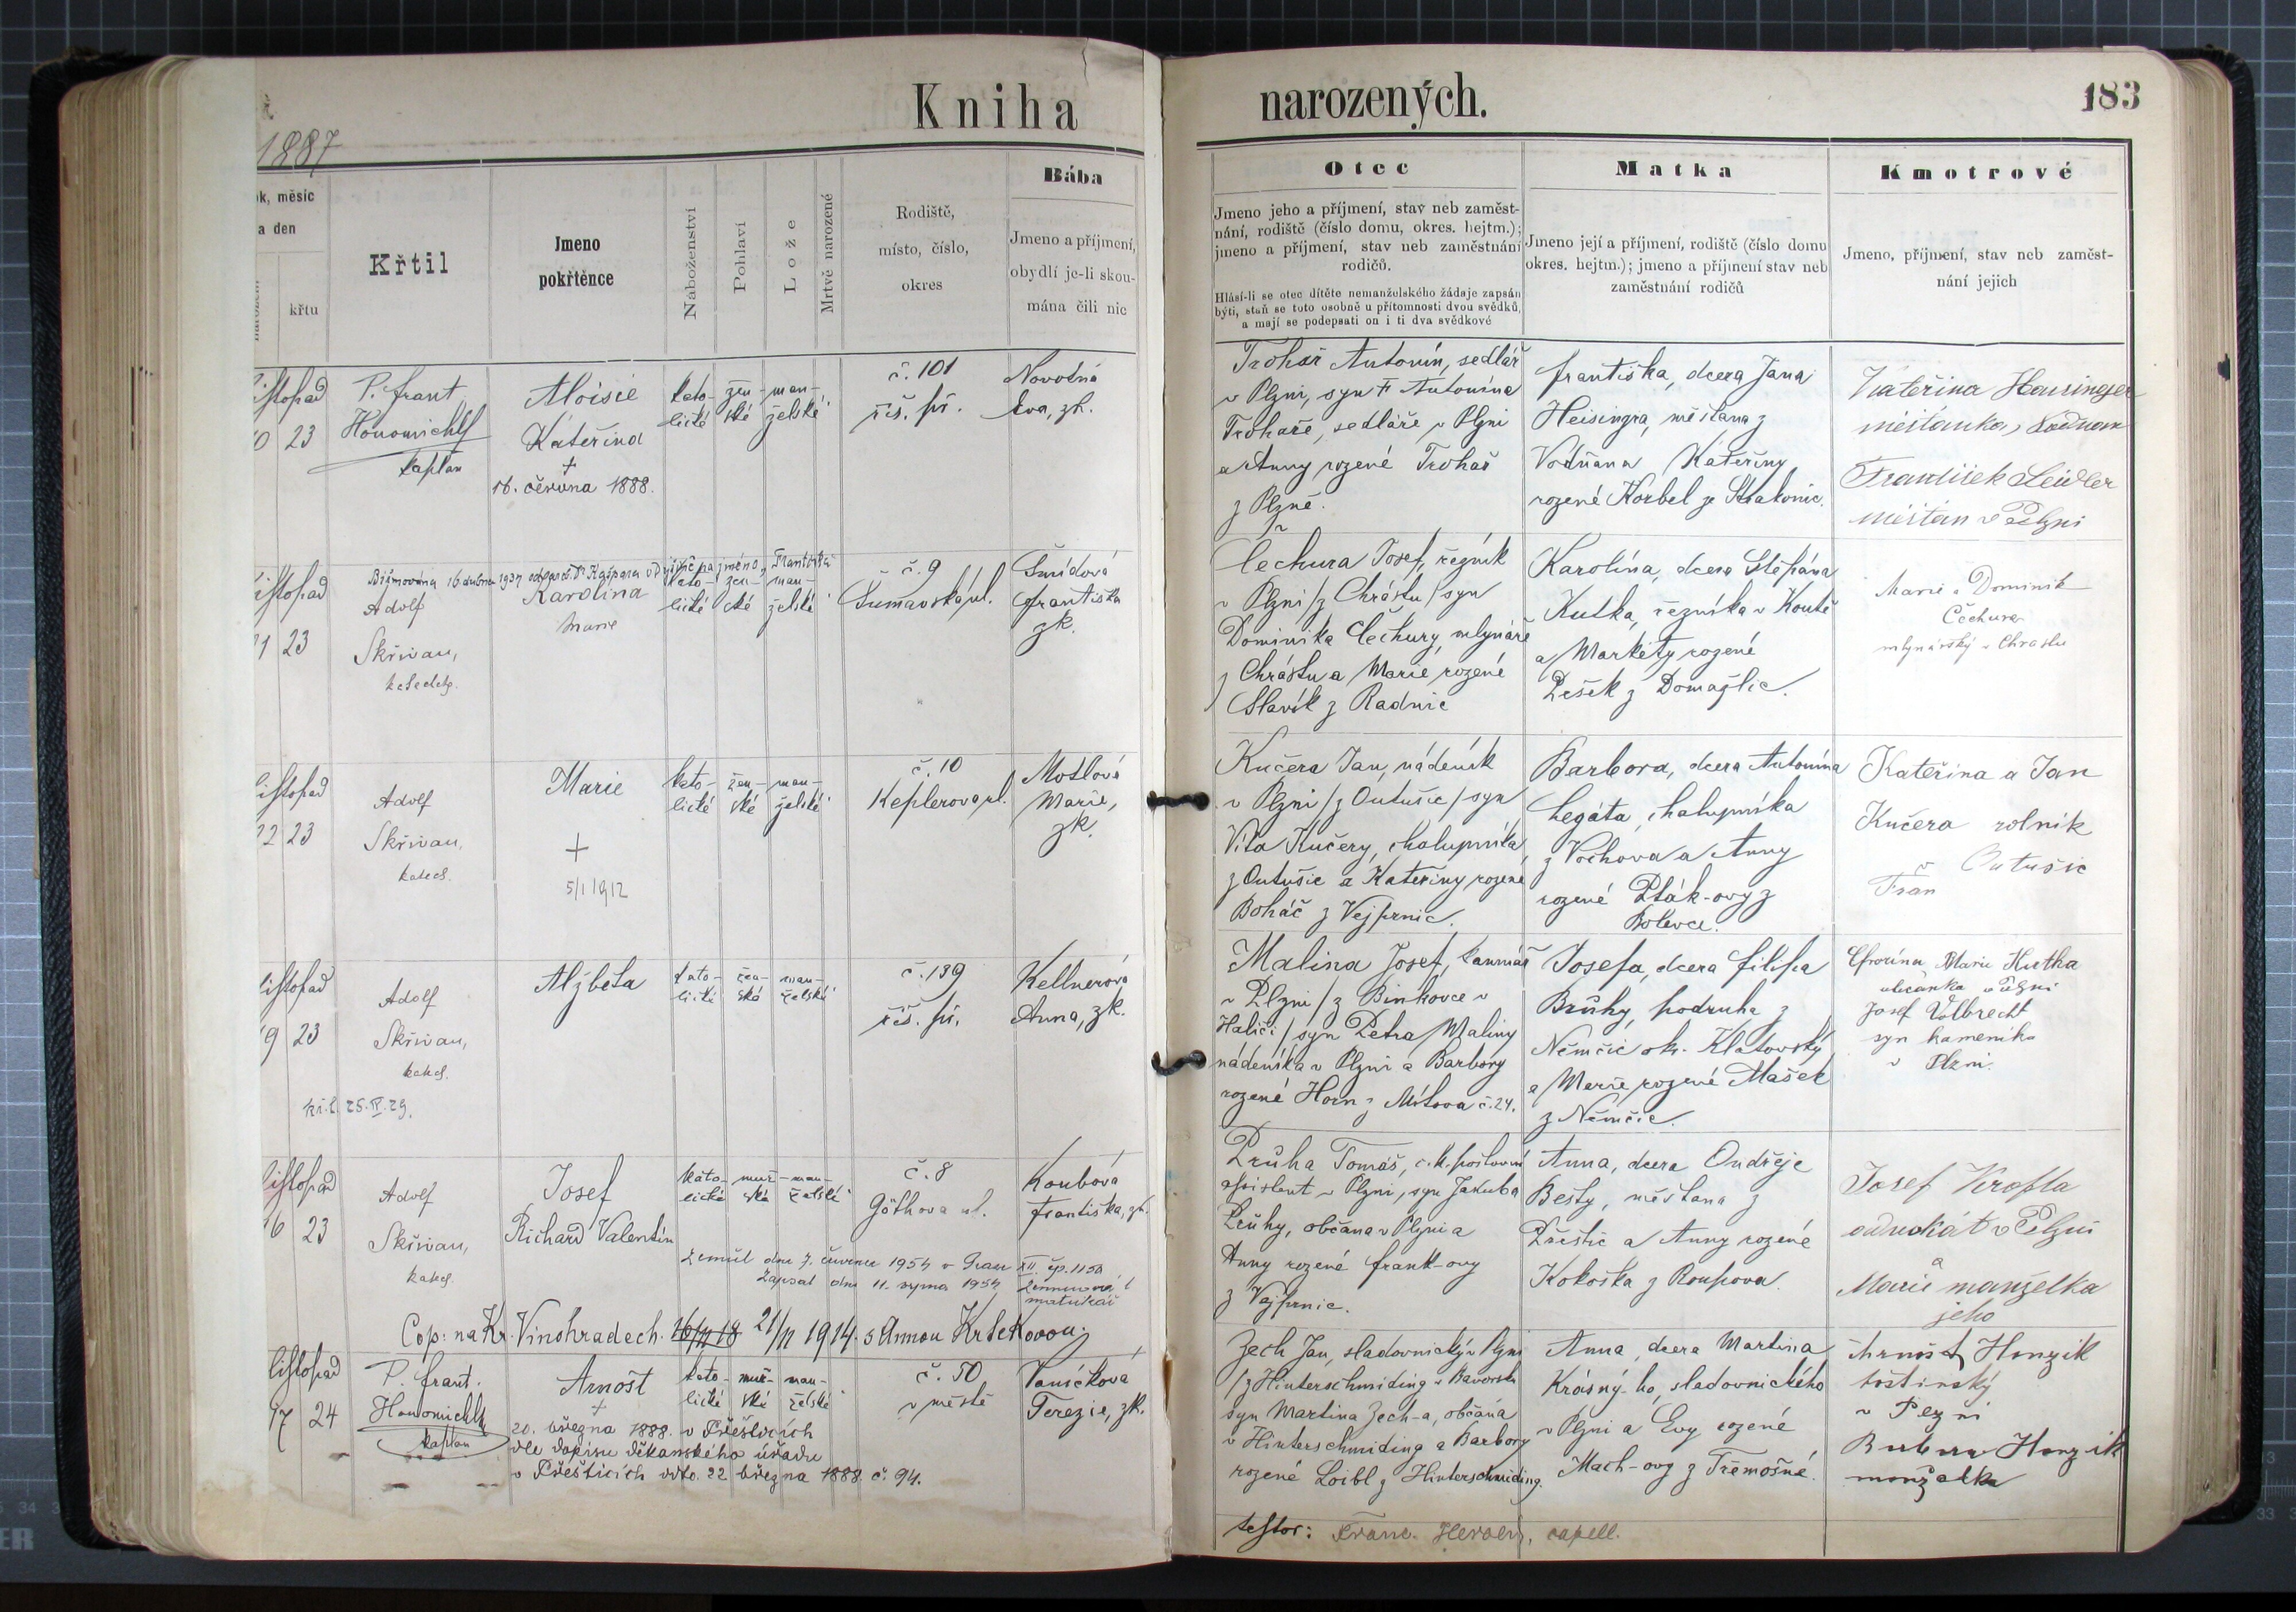 Kniha
narozených.
183
1887
měsíc
a den
křtu
Křtil
Jmeno
pokřtěnce
Náboženství
Pohlaví
Lože
Mrtvě narozené
Rodiště,
místo, číslo,
okres
Bába
Jmeno a příjmení,
obydlí je-li skou-
mána čili nic
Otec
Jmeno jeho a příjmení, stav neb zaměst-
nání, rodiště (číslo domu, okres. hejtm.);
jmeno a příjmení, stav neb zaměstnání
rodičů.
Hlásí-li se otec dítěte nemanželského žádaje zapsán
býti, staň se toto osobně u přítomnosti dvou svědků,
a mají se podepsati on i ti dva svědkové
Matka
Jmeno její a příjmení, rodiště (číslo domu
okres. hejtm.); jmeno a příjmení stav neb
zaměstnání rodičů
Kmotrové
Jmeno, příjmení, stav neb zaměst-
nání jejich
23
P. frant.
Honomichl
kaplan
Aloisie
Kateřina
+
16. června 1888.
kato-
lické
žen-
ské
man-
želské
č. 101
říš. př.
Novotná
Eva, zk.
Trohař Antonín, sedlář
v Plzni, syn † Antonína
Trohaře, sedláře v Plzni
a Anny rozené Trohař
z Plzně.
františka, dcera Jana
Heisingra, měšťana z
Vodňan a Kateřiny
rozené Korbel ze Strakonic.
Kateřina
měšťanka,
František
měšťan v Plzni
23
Biřmována 16 dubna 1937
Adolf
Skřivan,
Karolina
Marie
kato-
lické
žen-
ské
man-
želské
č. 9
Šumavská ul.
Šmídová
františka
zk.
Čechura Josef, řezník
v Plzni /z Chrástu/ syn
Dominika Čechury, mlynáře
z Chrástu a Marie rozené
Slavík z Radnic
Karolína, dcera Štěpána
Kutka, řezníka v Koutě
a Markéty rozené
Pešek z Domažlic.
Marie a Dominik
Čechura
mlynářský v Chrástu
listopad
22 23
Adolf
Skřivan,
katech.
Marie
+
5/1 1912
kato-
lické
žen-
ské
man-
želské
č. 10
Keplerova ul.
Motlová
Marie,
zk.
Kučera Jan, nádeník
v Plzni /z Outušic/ syn
Víta Kučery, chalupníka
z Outušic a Kateřiny rozené
Boháč z Vejprnic.
Barbora, dcera Antonína
Legáta, chalupníka
z Vochova a Anny
rozené Pták-ovy z
Bolevce.
Kateřina a Jan
Kučera rolník
v Outušic
listopad
19 23
Adolf
Skřivan,
katech.
kř. l. 25.IV.29.
Alžběta
kato-
lické
žen-
ské
man-
želské
č. 139
říš. př.
Kellnerová
Anna, zk.
Malina Josef,
v Plzni /z Binkovce v
Haliči/ syn Petra Maliny
nádeníka v Plzni a Barbory
rozené Horn z Mítova č. 24.
Josefa, dcera filipa
Brůhy, podruha z
Němčic ok. Klatovský
a Marie rozené Mašek
z Němčic.
Marie Kutka
občanka v Plzni
Josef Volbrecht
syn kameníka
v Plzni.
listopad
16 23
Adolf
Skřivan,
katech.
Josef
Richard Valentin
kato-
lické
muž-
ské
man-
želské
č. 8
Göthova ul.
Koubová
františka, zk.
Zemřel dne 7. července 1954 v Praze XII. čp. 1150
Zapsal dne 11. srpna 1954
matrikář
Cop: na Kr. Vinohradech. 21/11 1914. s Annou Krtekovou.
Průha Tomáš, c.k. poštovní
assistent v Plzni, syn Jakuba
Průhy, občana v Plzni a
Anny rozené frank-ovy
z Vejprnic.
Anna, dcera Ondřeje
Bešty, měšťana z
Přeštic a Anny rozené
Kokoška z Roupova.
Josef Kropla
advokát v Plzni
a
Marie manželka
jeho
listopad
17 24
P. frant.
Honomichl
kaplan
Arnošt
+
20. března 1888. v Přešticích
dle dopisu děkanského úřadu
v Přešticích ddto. 22 března 1888 č. 94.
kato-
lické
muž-
ské
man-
želské
č. 50
v městě
Vaníčková
Terezie, zk.
Zech Jan, sladovnický v Plzni
/z Hinterschmiding v Bavorsku
syn Martina Zech-a, občana
v Hinterschmiding a Barbory
rozené Loibl z Hinterschmiding.
Anna, dcera Martina
Krásný-ho, sladovnického
v Plzni a Evy rozené
Mach-ovy z Třemošné.
Arnošt Honzik
hostinský
v Plzni
Barbora Honzik
manželka
testor: Franc. capell.